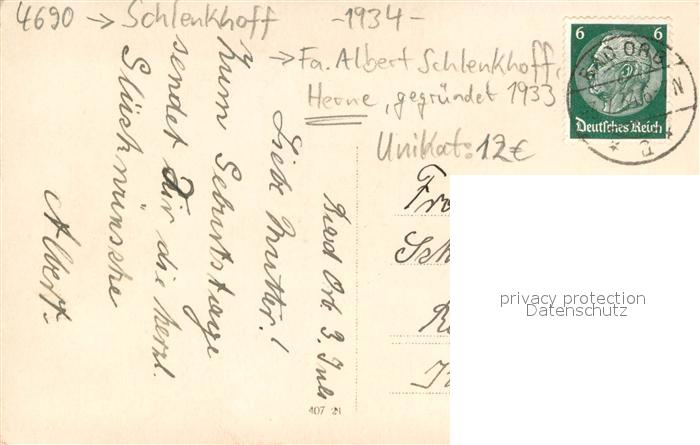 4690 → Schlenkhoff -1934-
→ Fa. Albert Schlenkhoff,
Herne, gegründet 1933
Unikat: 12€
6 6
Deutsches Reich
BAD ORB
Bad Orb 3. Juli
Liebe Mutter!
Zum Geburtstage
sendet Dir die herzl.
Glückwünsche
Albert.
407 21
privacy protection
Datenschutz